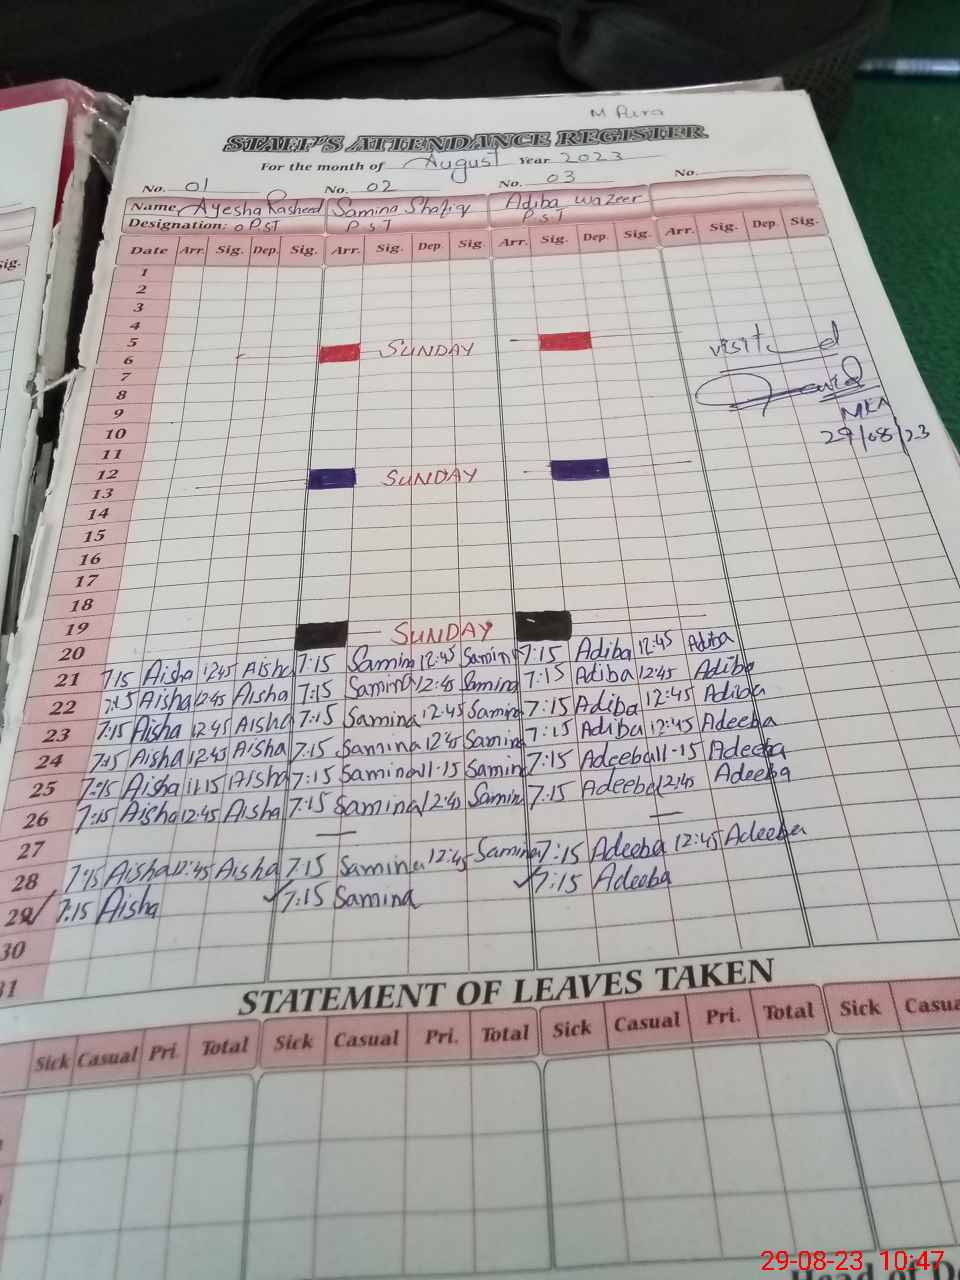 M Pura
STAFF'S ATTENDANCE REGISTER
For the month of August Year 2023
No. 01 No. 02 No. 03 No.
Name Ayesha Rasheed Samina Shafiq Adiba Wazeer
Designation: PST P.S.T P.S.T
Sig. Date Arr. Sig. Dep. Sig. Arr. Sig. Dep. Sig. Arr. Sig. Dep. Sig. Arr. Sig. Dep. Sig.
1
2
3
4
5
6 SUNDAY
visited
7
8
MKN
9
29/08/23
10
11
12
13 SUNDAY
14
15
16
17
18
19
20 SUNDAY
21 7:15 Aisha 12:45 Aisha 7:15 Samina 12:45 Samina 7:15 Adiba 12:45 Adiba
22 7:15 Aisha 12:45 Aisha 7:15 Samina 12:45 Samina 7:15 Adiba 12:45 Adiba
23 7:15 Aisha 12:45 Aisha 7:15 Samina 12:45 Samina 7:15 Adiba 12:45 Adiba
24 7:15 Aisha 12:45 Aisha 7:15 Samina 12:45 Samina 7:15 Adiba 12:45 Adeeba
25 7:15 Aisha 11:15 Aisha 7:15 Samina 11-15 Samina 7:15 Adeeba 11-15 Adeeba
26 7:15 Aisha 12:45 Aisha 7:15 Samina 12:45 Samina 7:15 Adeeba 12:45 Adeeba
27
28 7:15 Aisha 12:45 Aisha 7:15 Samina 12:45 Samina 7:15 Adeeba 12:45 Adeeba
29 7:15 Aisha 7:15 Samina 7:15 Adeeba
30
31
STATEMENT OF LEAVES TAKEN
Sick Casual Pri. Total Sick Casual Pri. Total Sick Casual Pri. Total Sick
29-08-23 10:47